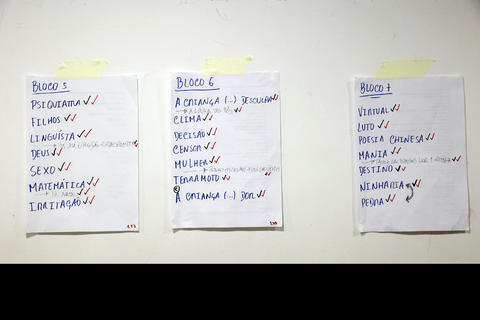 BLOCO 5
PSIQUIATRIA
FILHOS
LINGUÍSTA
DEUS
SEXO
MATEMÁTICA
IRRITAÇÃO
BLOCO 6
A CRIANÇA (...) DESCULPA
CLIMA
DECISÃO
CENSOR
MULHER
TERRAMOTO
A CRIANÇA (...) DOR
BLOCO 7
VIRTUAL
LUTO
POESIA CHINESA
MANIA
DESTINO
NINHARIA
PEDRA